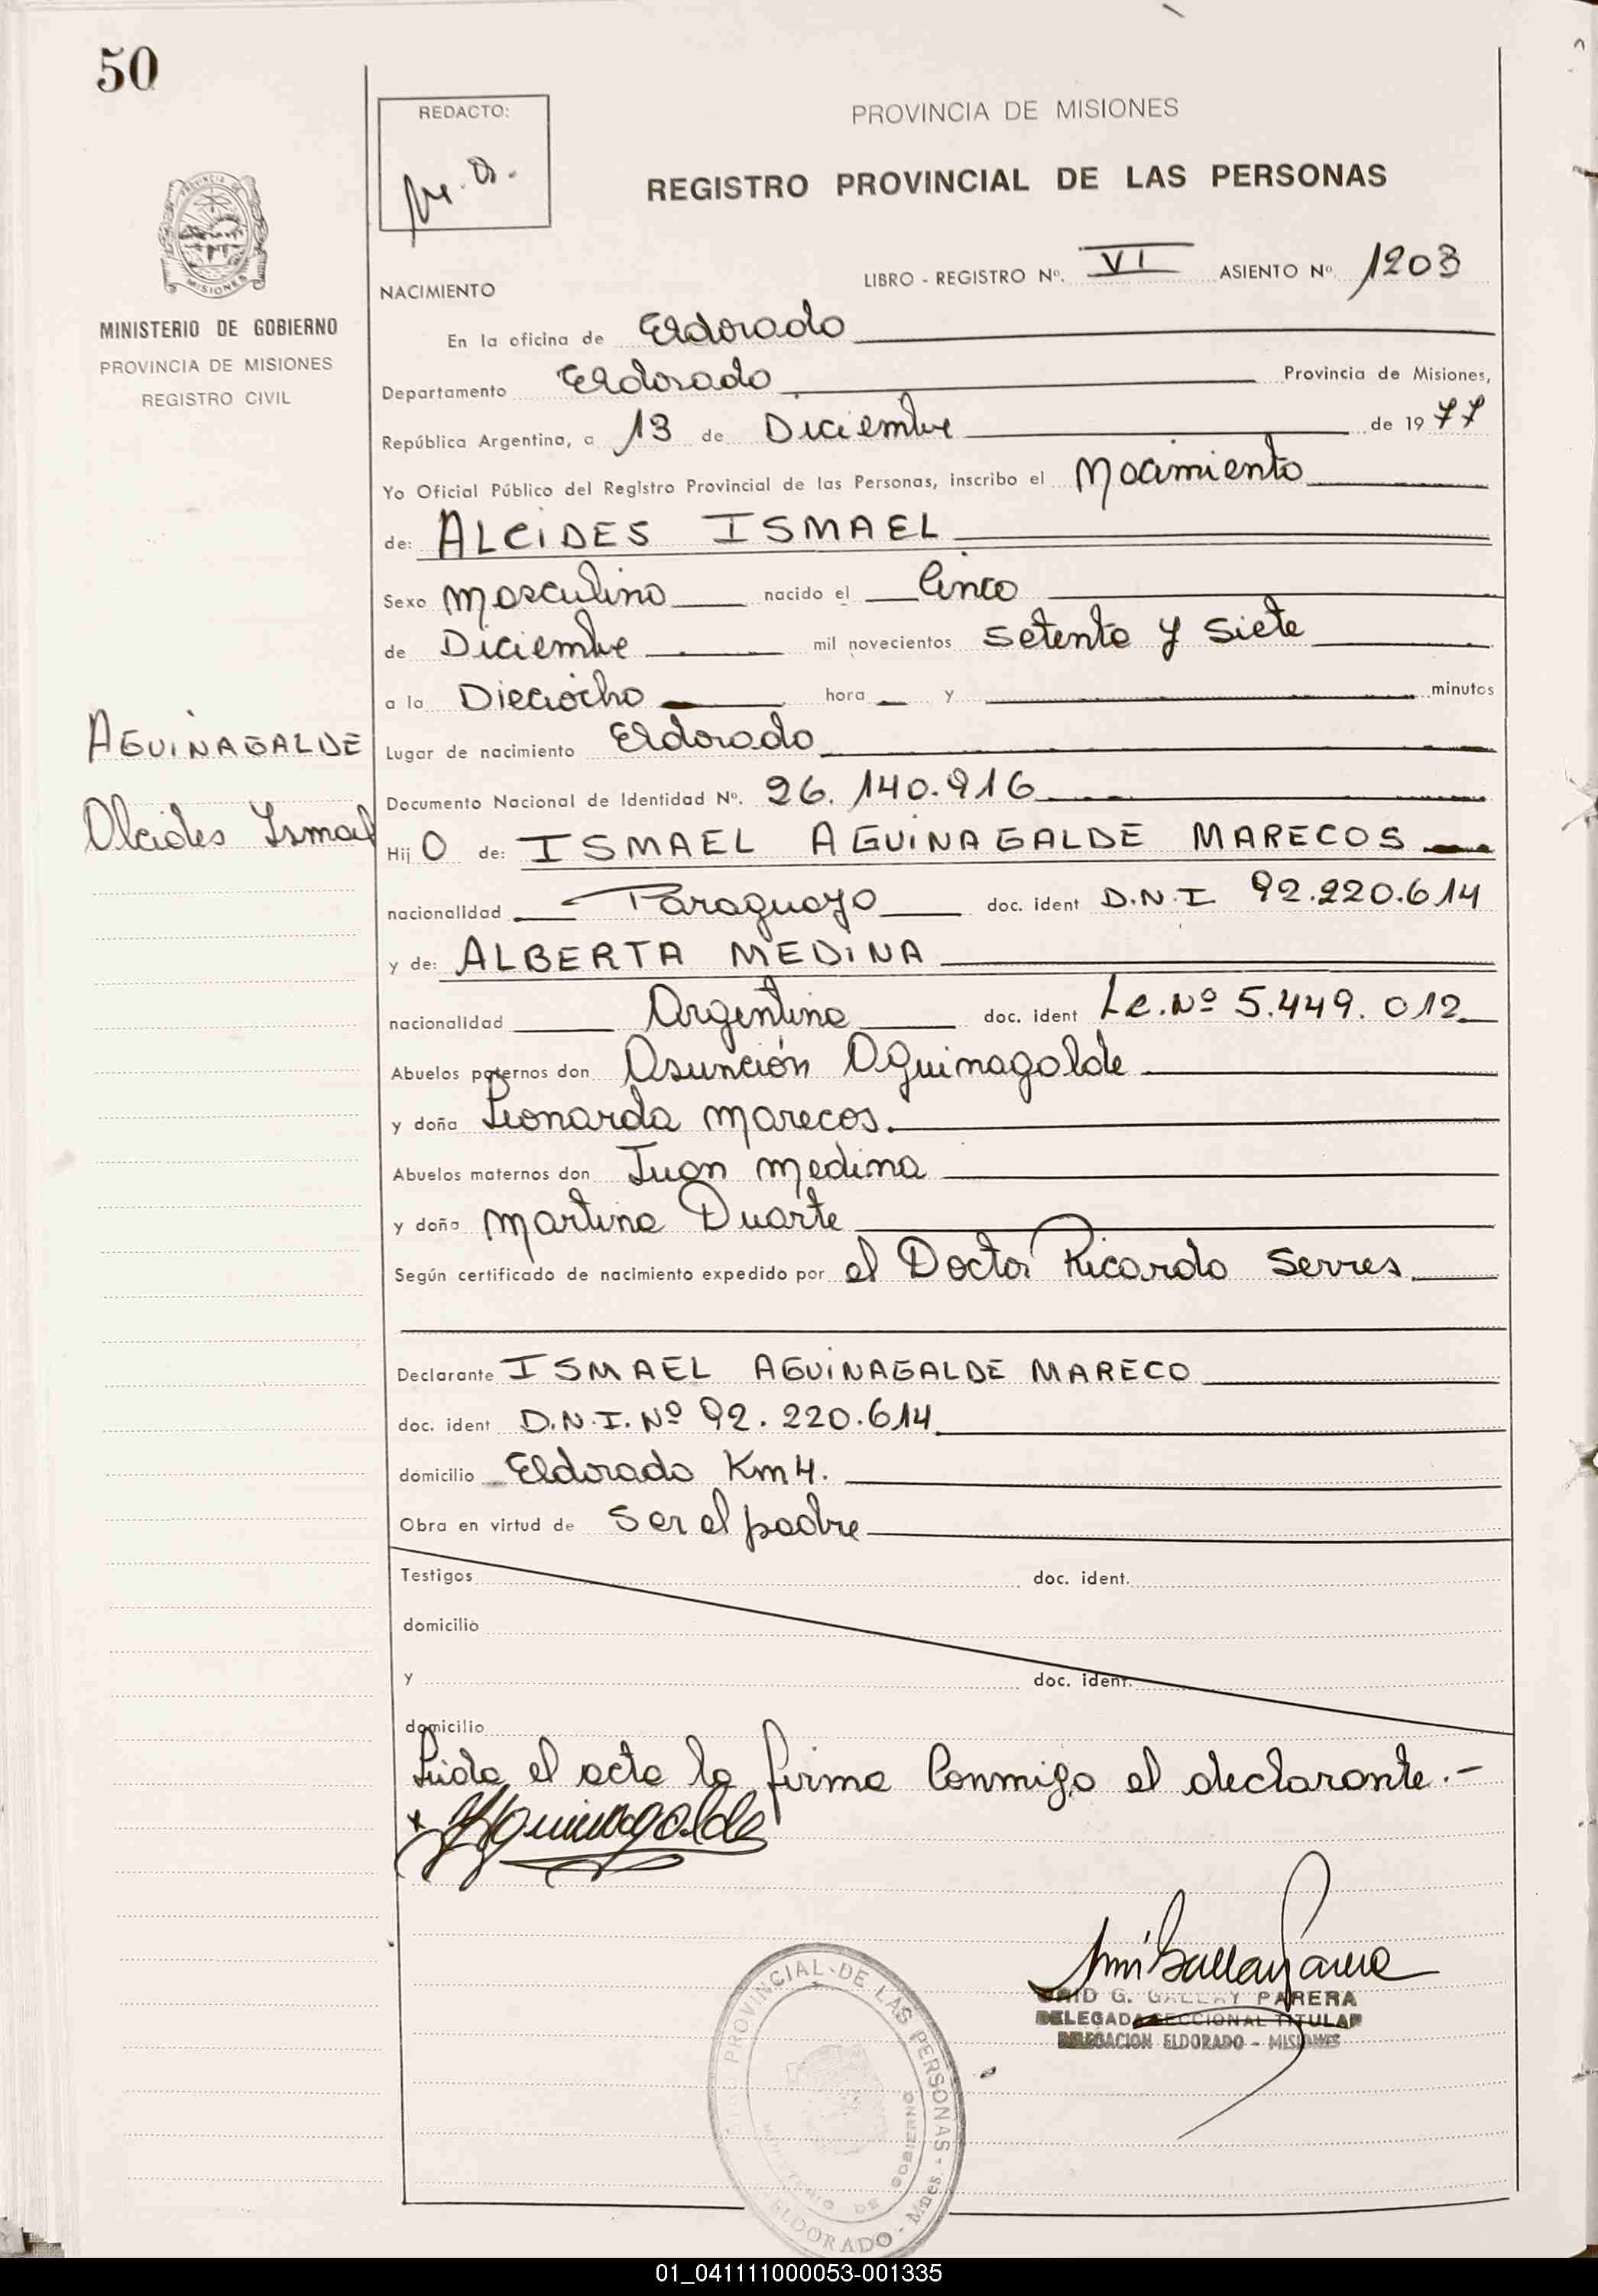 50
REDACTO:
PROVINCIA DE MISIONES
REGISTRO PROVINCIAL DE LAS PERSONAS
LIBRO - REGISTRO Nº. VI ASIENTO Nº. 1203
NACIMIENTO
MINISTERIO DE GOBIERNO
PROVINCIA DE MISIONES
REGISTRO CIVIL
En la oficina de Eldorado
Departamento Eldorado Provincia de Misiones,
República Argentina, a 13 de Diciembre de 1977
Yo Oficial Público del Registro Provincial de las Personas, inscribo el Nacimiento
de: ALCIDES ISMAEL
Sexo masculino nacido el Cinco
de Diciembre mil novecientos setenta y siete
a la Dieciocho hora y minutos
AGUINAGALDE
Lugar de nacimiento Eldorado
Documento Nacional de Identidad Nº. 26.140.916
Alcides Ismael
Hij O de: ISMAEL AGUINAGALDE MARECOS
nacionalidad Paraguayo doc. ident D.N.I 92.220.614
y de: ALBERTA MEDINA
nacionalidad Argentina doc. ident L.C.Nº 5.449.012
Abuelos paternos don Asunción Aguinagalde
y doña Leonarda Marecos.
Abuelos maternos don Juan Medina
y doña Martina Duarte
Según certificado de nacimiento expedido por el Doctor Ricardo Serres
Declarante ISMAEL AGUINAGALDE MARECO
doc. ident D.N.I. Nº 92.220.614
domicilio Eldorado Km 4.
Obra en virtud de ser el padre
Testigos doc. ident.
domicilio
y doc. ident.
domicilio
Leida el acta la firma Conmigo el declarante.-
Aguinagalde
G. GALLAY PARERA
DELEGADA SECCIONAL TITULAR
DELEGACION ELDORADO - MISIONES
PROVINCIAL DE LAS PERSONAS - Mnes.
MINISTERIO DE GOBIERNO
ELDORADO
01_041111000053-001335